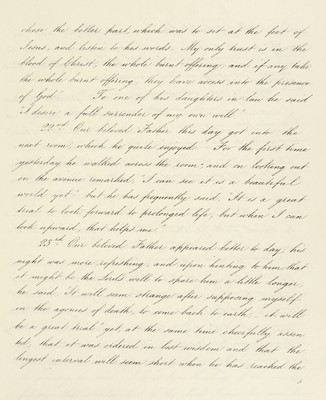 chose the better part, which was to set at the feet of
Jesus, and listen to his words. My only trust is in the
blood of Christ, the whole burnt offering, and if any take
the whole burnt offering, they have access into the presence
of God" To one of his daughters in law he said
"I desire a full surrender of my own will"
22nd Our beloved Father this day got into the
next room, which he quite enjoyed For the first time
yesterday he walked across the room, and on looking out
on the avenue remarked, "I can see it is a beautiful
world yet" but he has frequently said, "It is a great
trial to look forward to prolonged life, but when I can
look upward, that helps me"
25th Our beloved Father appeared better to day, his
night was more refreshing, and upon hinting to him that
it might be the Lords will to spare him a little longer,
he said "It will seem strange after supposing myself
in the agonies of death, to come back to earth it will
be a great trial" yet, at the same time cheerfully assen
ted, that it was ordered in best wisdom and that the
longest interval will seem short when he has reached the